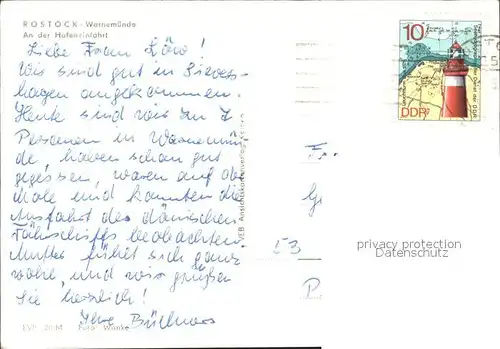 ROSTOCK-Warnemünde
An der Hafeneinfahrt
Liebe Frau Löw!
Wir sind gut in Lieves-
hagen angekommen.
Heute sind wir zu 7
Personen in Warnemün
de, haben schon gut
gegessen, waren auf der
Mole und konnten die
Ausfahrt des dänischen
Fährschiffs beobachten.
Mutter fühlt sich ganz
wohl, und wir grüßen
Sie herzlich!
Ihre Büttners
EVP Foto: Wanke
VEB Ansichtskartenverlag
10
DDR
53
privacy protection
Datenschutz